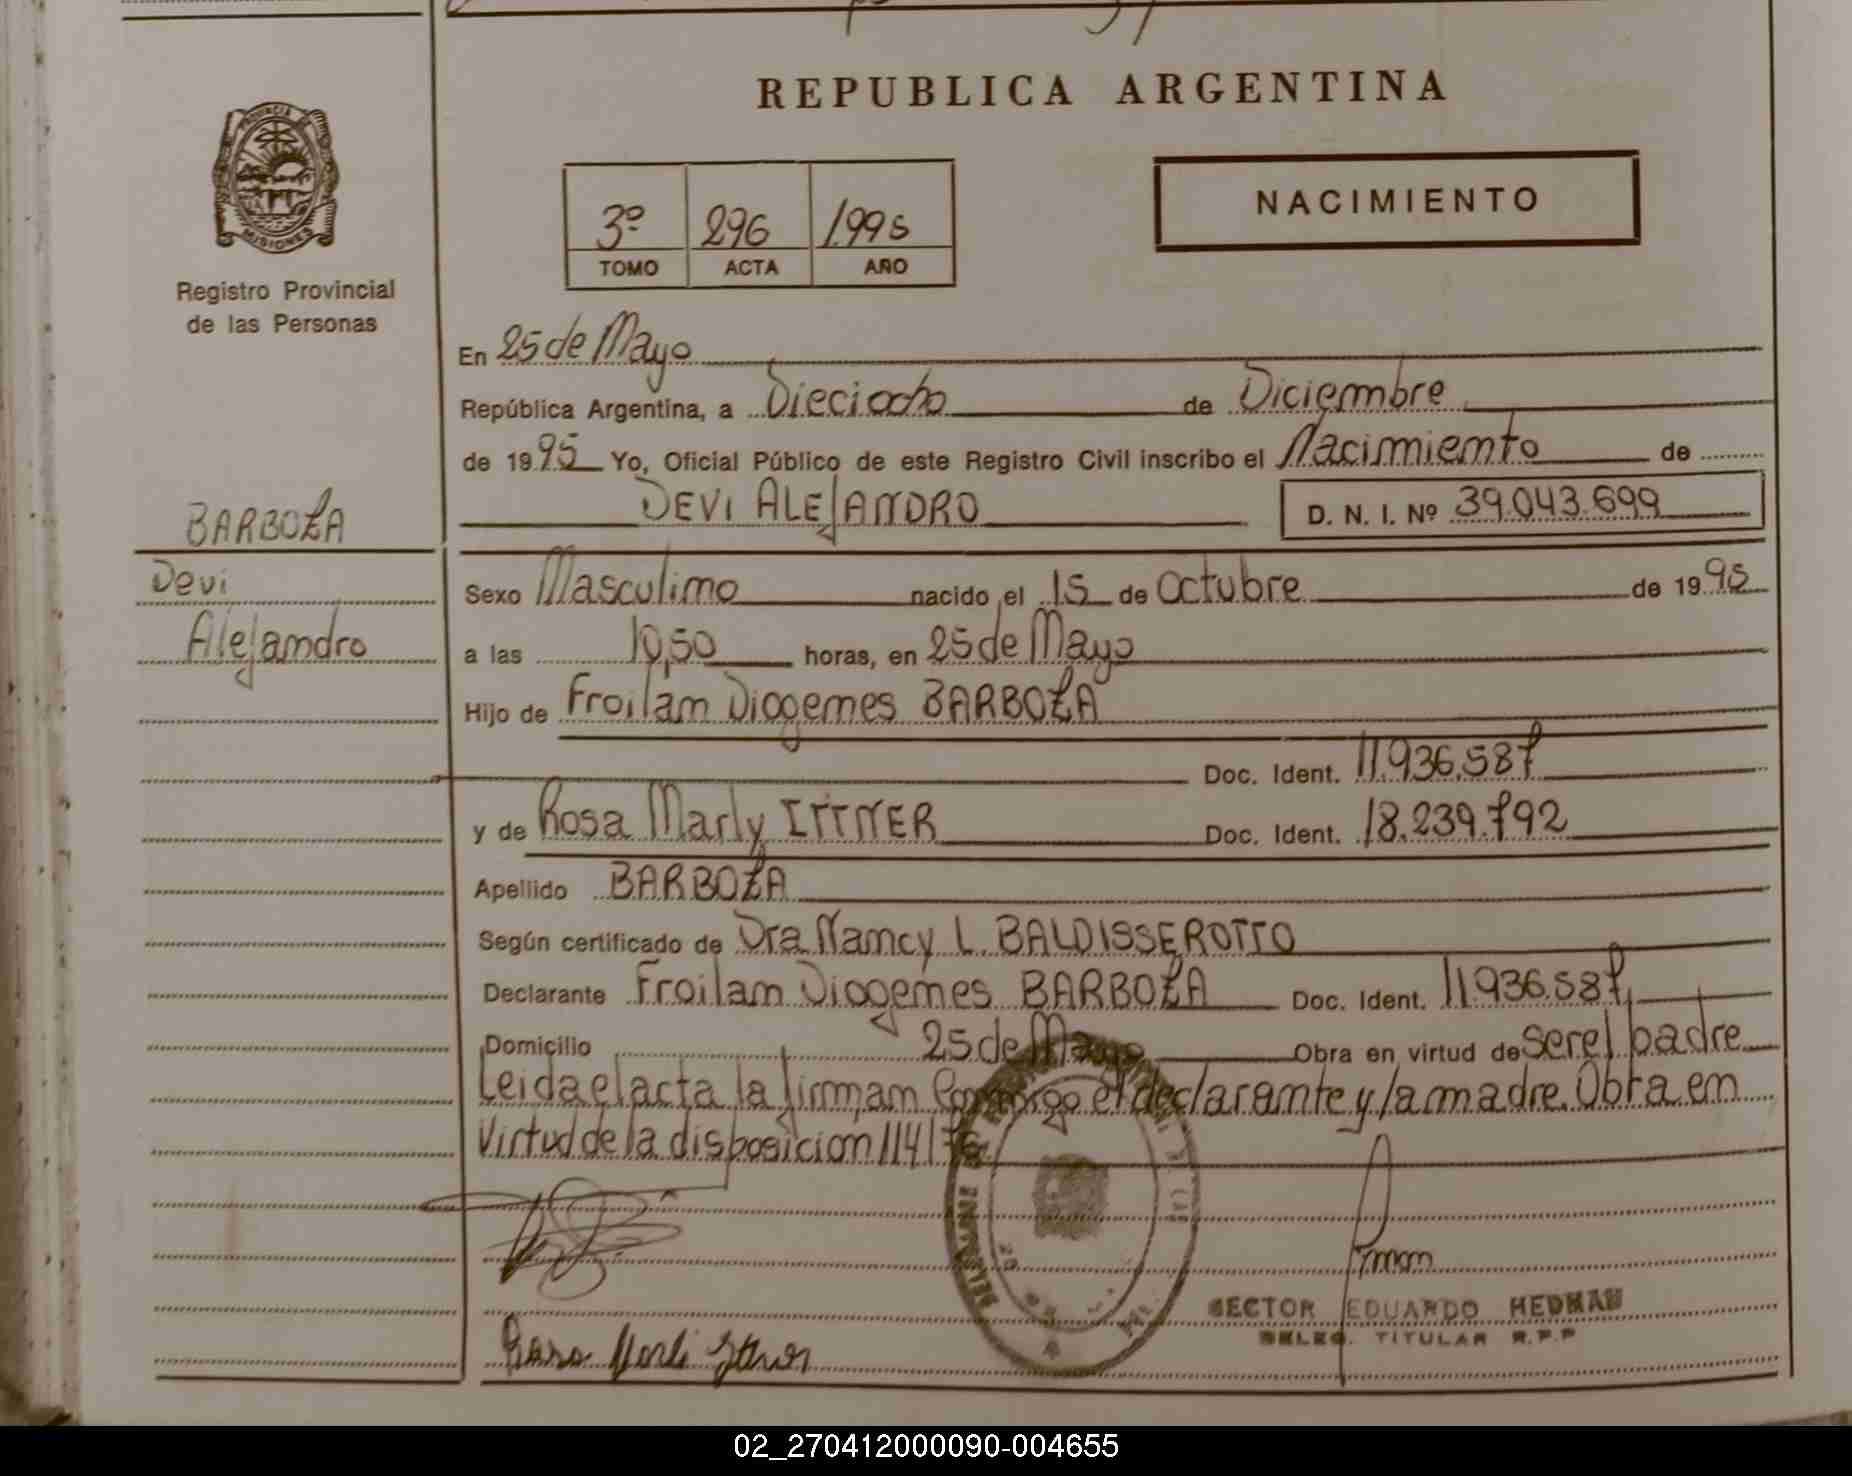 REPUBLICA ARGENTINA
PROVINCIA DE
MISIONES
Registro Provincial
de las Personas
3º 296 1.995
TOMO ACTA AÑO
NACIMIENTO
En 25 de Mayo
República Argentina, a Dieciocho de Diciembre
de 1995 Yo, Oficial Público de este Registro Civil inscribo el Nacimiento de
DEVI ALEJANDRO D. N. I. Nº 39.043.699
BARBOZA
Devi
Alejandro
Sexo Masculino nacido el 15 de Octubre de 1995
a las 10,50 horas, en 25 de Mayo
Hijo de Froilan Diogenes BARBOZA
Doc. Ident. 11.936.587
y de Rosa Marly ITTNER Doc. Ident. 18.239.792
Apellido BARBOZA
Según certificado de Dra Nancy L. BALDISSEROTTO
Declarante Froilan Diogenes BARBOZA Doc. Ident. 11.936.587
Domicilio 25 de Mayo Obra en virtud de ser el padre
Leida el acta la firman Conmigo el declarante y la madre. Obra en
Virtud de la disposicion 114/76
Rosa Marli Ittner
EDUARDO HEDMAN
DELEG. TITULAR R.P.P
02_270412000090-004655